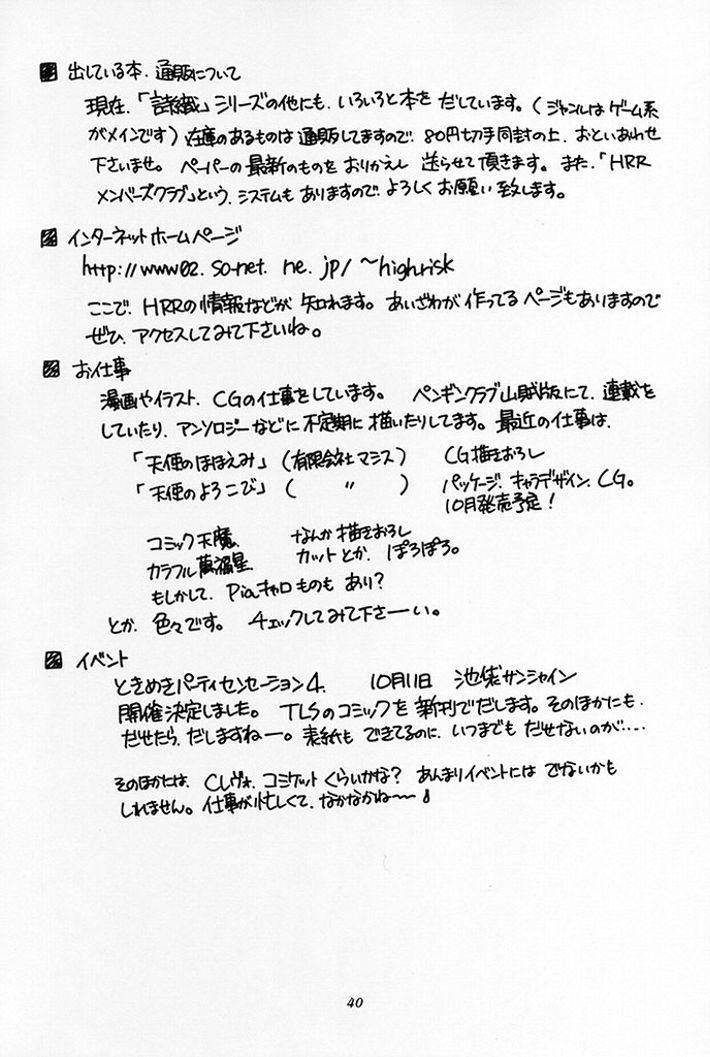 出している本、通販について
現在、「詩織」シリーズの他にも、いろいろと本を だしています。(ジャンルは ゲーム系
がメインです) 在庫のあるものは 通販してますので、80円切手同封の上、おといあわせ
下さいませ。 ペーパーの 最新のものを おりかえし 送らせて頂きます。 また、「HRR
メンバーズクラブ」という、システムも ありますので、よろしく お願い致します。
インターネットホームページ
http://www02.so-net.ne.jp/~highrisk
ここで、HRRの情報などが 知れます。 あいざわが作ってる ページもありますので
ぜひ、アクセスしてみて下さいね。
お仕事
漫画やイラスト、CGの仕事をしています。 ペンギンクラブ山賊版にて、連載を
していたり、アンソロジーなどに 不定期に 描いたりしてます。最近の仕事は、
「天使のほほえみ」 (有限会社マシス) CG描きおろし
「天使のよろこび」 ( 〃 ) パッケージ、キャラデザイン、CG。
10月発売予定!
コミック天魔、 なんか描きおろし
カラフル萬福星、 カットとか、ぽろぽろ。
もしかして、Piaキャロものも あり?
とか、色々です。 チェックしてみて下さーい。
イベント
ときめきパーティセンセーション4、 10月11日 池袋サンシャイン
開催決定しました。 TLSのコミックを 新刊でだします。そのほかにも、
だせたら、だしますねー。表紙も できてるのに、いつまでも だせないのが‥‥
そのほかには、Cレヴォ、コミケット くらいかな? あんまりイベントには でないかも
しれません。仕事が忙しくて、なかなかね〜〜♪
40